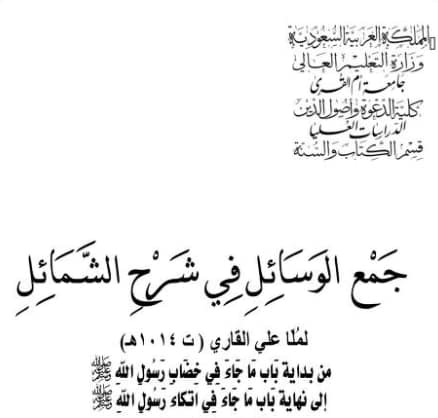 المملكة العربية السعودية
وزارة التعليم العالي
جامعة أم القرى
كلية الدعوة وأصول الدين
الدراسات العليا
قسم الكتاب والسنة
جَمْع الوَسَائِلِ فِي شَرْحِ الشَّمَائِلِ
لمُلا علي القاري ( ت ١٠١٤هـ)
من بداية بَاب مَا جَاءَ فِي خِضَابِ رَسُولِ اللّهِ ﷺ
إلى نهاية بَاب مَا جَاءَ فِي اتكاء رَسُولِ اللّهِ ﷺ